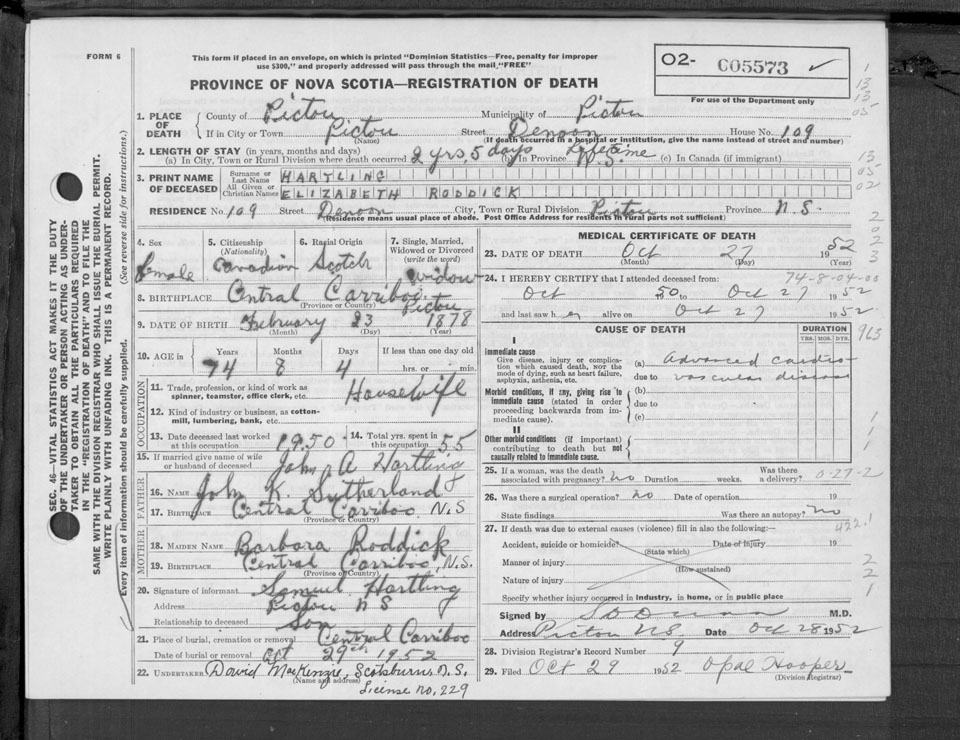 FORM 6
This form if placed in an envelope, on which is printed "Dominion Statistics—Free, penalty for improper
use $300," and properly addressed will pass through the mail "FREE"
PROVINCE OF NOVA SCOTIA—REGISTRATION OF DEATH
O2- 005573 ✓
For use of the Department only
1. PLACE OF DEATH
County of Pictou Municipality of Pictou
If in City or Town Pictou Street Denoon House No. 109
(Name) (If death occurred in a hospital or institution, give the name instead of street and number)
2. LENGTH OF STAY (in years, months and days)
(a) In City, Town or Rural Division where death occurred 2 yrs, 5 days (b) In Province Lifetime N.S. (c) In Canada (if immigrant)
3. PRINT NAME OF DECEASED
Surname or Last Name HARTLING
All Given or Christian Names ELIZABETH RODDICK
RESIDENCE No. 109 Street Denoon City, Town or Rural Division Pictou Province N.S.
(Residence means usual place of abode. Post Office Address for residents in rural parts not sufficient)
4. Sex female
5. Citizenship (Nationality) Canadian
6. Racial Origin Scotch
7. Single, Married, Widowed or Divorced (write the word) widow
8. BIRTHPLACE Central Carriboo Pictou
(Province or Country)
9. DATE OF BIRTH February 23 1878
(Month) (Day) (Year)
10. AGE in Years Months Days If less than one day old
74 8 4 hrs. or min.
OCCUPATION
11. Trade, profession, or kind of work as spinner, teamster, office clerk, etc. Housewife
12. Kind of industry or business, as cotton-mill, lumbering, bank, etc.
13. Date deceased last worked at this occupation 1950
14. Total yrs. spent in this occupation 55
15. If married give name of wife or husband of deceased John A Hartling
FATHER
16. NAME John K. Sutherland
17. BIRTHPLACE Central Carriboo, N.S
(Province or Country)
MOTHER
18. MAIDEN NAME Barbara Roddick
19. BIRTHPLACE Central Carriboo, N.S.
(Province or Country)
20. Signature of informant Samuel Hartling
Address Pictou N S
Relationship to deceased Son
21. Place of burial, cremation or removal Central Carriboo
Date of burial or removal Oct 29th 1952
22. UNDERTAKER David MacKenzie, Scotsburn N.S.
(Name and address)
License no. 229
MEDICAL CERTIFICATE OF DEATH
23. DATE OF DEATH Oct 27 1952
(Month) (Day) (Year)
24. I HEREBY CERTIFY that I attended deceased from: 74-8-04-00
Oct 1950 to Oct 27 1952
and last saw her alive on Oct 27 1952
CAUSE OF DEATH
DURATION
YRS. MOS. DYS.
I
Immediate cause
Give disease, injury or complication which caused death, NOT the mode of dying, such as heart failure, asphyxia, asthenia, etc.
(a) Advanced cardio
due to vascular disease
Morbid conditions, if any, giving rise to immediate cause (stated in order proceeding backwards from immediate cause).
(b)
due to
(c)
II
Other morbid conditions (if important) contributing to death but not causally related to immediate cause.
25. If a woman, was the death associated with pregnancy? no Duration weeks. Was there a delivery? 0-27-2
26. Was there a surgical operation? no Date of operation 19
State findings Was there an autopsy? no
27. If death was due to external causes (violence) fill in also the following:— 422.1
Accident, suicide or homicide? Date of injury 19
(State which)
Manner of injury
(How sustained)
Nature of injury
Specify whether injury occurred in industry, in home, or in public place
Signed by M.D.
Address Pictou NS Date Oct 28 1952
28. Division Registrar's Record Number 9
29. Filed Oct 29 1952 Opal Hooper
(Division Registrar)
1
13
13
05
13
05
02
2
0
2
3
963
1
1
2
2
1
SEC. 46—VITAL STATISTICS ACT MAKES IT THE DUTY
OF THE UNDERTAKER OR PERSON ACTING AS UNDER-
TAKER TO OBTAIN ALL THE PARTICULARS REQUIRED
IN THE "REGISTRATION OF DEATH" AND TO FILE THE
SAME WITH THE DIVISION REGISTRAR WHO SHALL ISSUE THE BURIAL PERMIT.
WRITE PLAINLY WITH UNFADING INK. THIS IS A PERMANENT RECORD.
Every item of information should be carefully supplied. (See reverse side for instructions.)